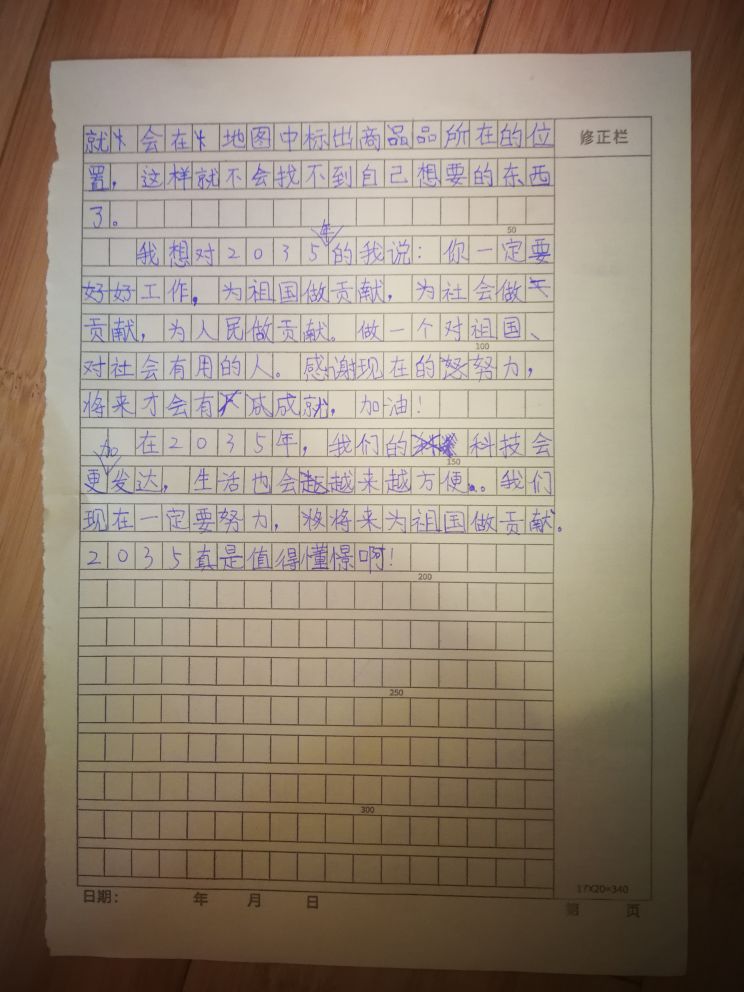 就会在地图中标出商品品所在的位
置，这样就不会找不到自己想要的东西
了。
我想对2035年的我说：你一定要
好好工作，为祖国做贡献，为社会做
贡献，为人民做贡献。做一个对祖国、
对社会有用的人。感谢现在的努力，
将来才会有成就，加油！
在2035年，我们的科技会
更加发达，生活也会越来越方便。我们
现在一定要努力，将来为祖国做贡献。
2035真是值得憧憬啊！
修正栏
50
100
150
200
250
300
17×20=340
日期： 年 月 日
第 页